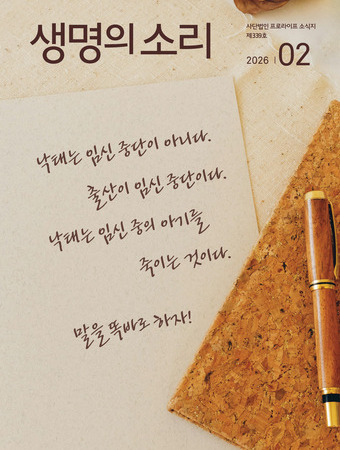 생명의 소리
사단법인 프로라이프 소식지
제339호
2026 | 02
낙태는 임신 중단이 아니다.
출산이 임신 중단이다.
낙태는 임신 중의 아기를
죽이는 것이다.
말을 똑바로 하자!